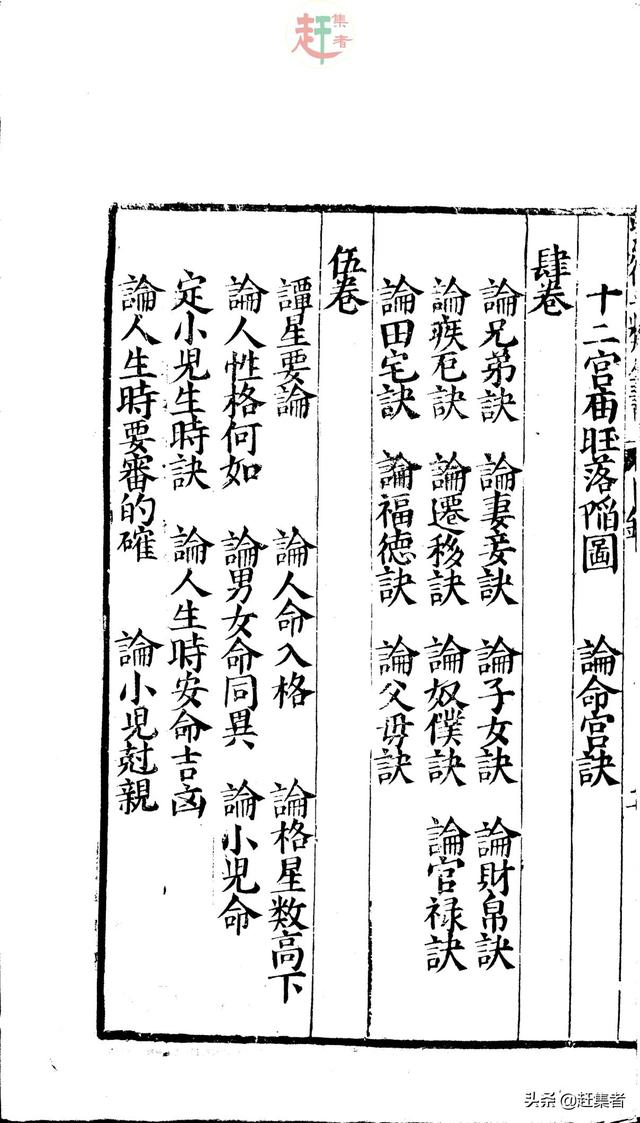 赶集者
十二宮庙旺落陷圖 論命宮訣
肆卷
論兄弟訣 論妻妾訣 論子女訣 論財帛訣
論疾厄訣 論遷移訣 論奴僕訣 論官禄訣
論田宅訣 論福德訣 論父母訣
伍卷
譚星要論 論人命入格 論格星数高下
論人性格何如 論男女命同異 論小児命
定小児生時訣 論人生時安命吉凶
論人生時要審的確 論小児尅親
头条 @赶集者